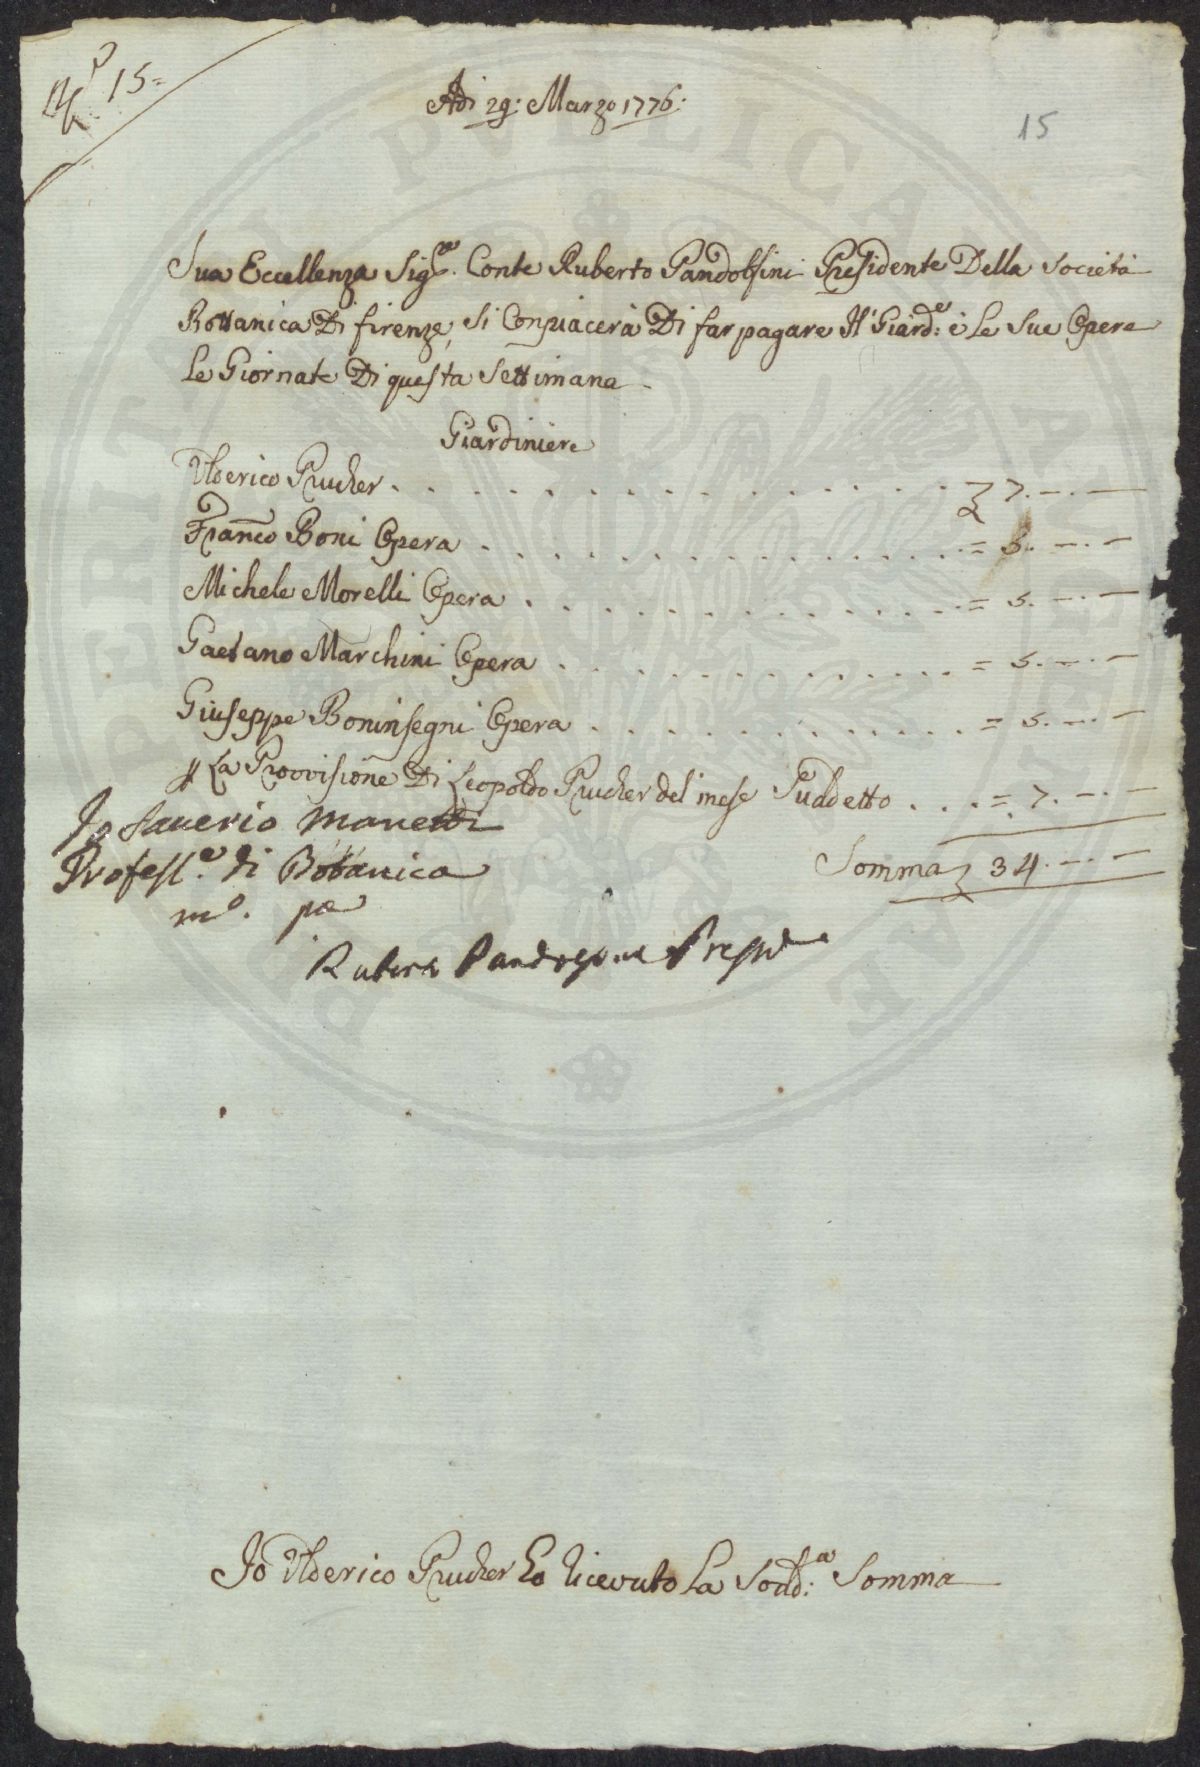 N.º 15=
Adi 29: Marzo 1776:
15
Sua Eccellenza Sig.re Conte Ruberto Pandolfini Presidente Della Società
Bottanica Di firenze, si Conpiacerà Di far pagare Il Giard.e è Le Sue Opere
Le Giornate Di questa Settimana
Giardiniere
Ulderico Prucher . . . . . . . . . . 7. — . —
Franco Boni Opera . . . . . . . . . . = 5. — . —
Michele Morelli Opera . . . . . . . . . . = 5. — . —
Gaetano Marchini Opera . . . . . . . . . . = 5. — . —
Giuseppe Boninsegni Opera . . . . . . . . . . = 5. — . —
La Provvisione Di Leopoldo Prucher del mese Suddetto . . . = 7. — . —
Io Saverio Manetti
Somma 34. — . —
Profess.e di Botanica
m.o pa
Ruberto Pandolfini Preside
Io Ulderico Prucher Ho ricevuto La Sodd:a Somma
PERITANI PVBLICAE